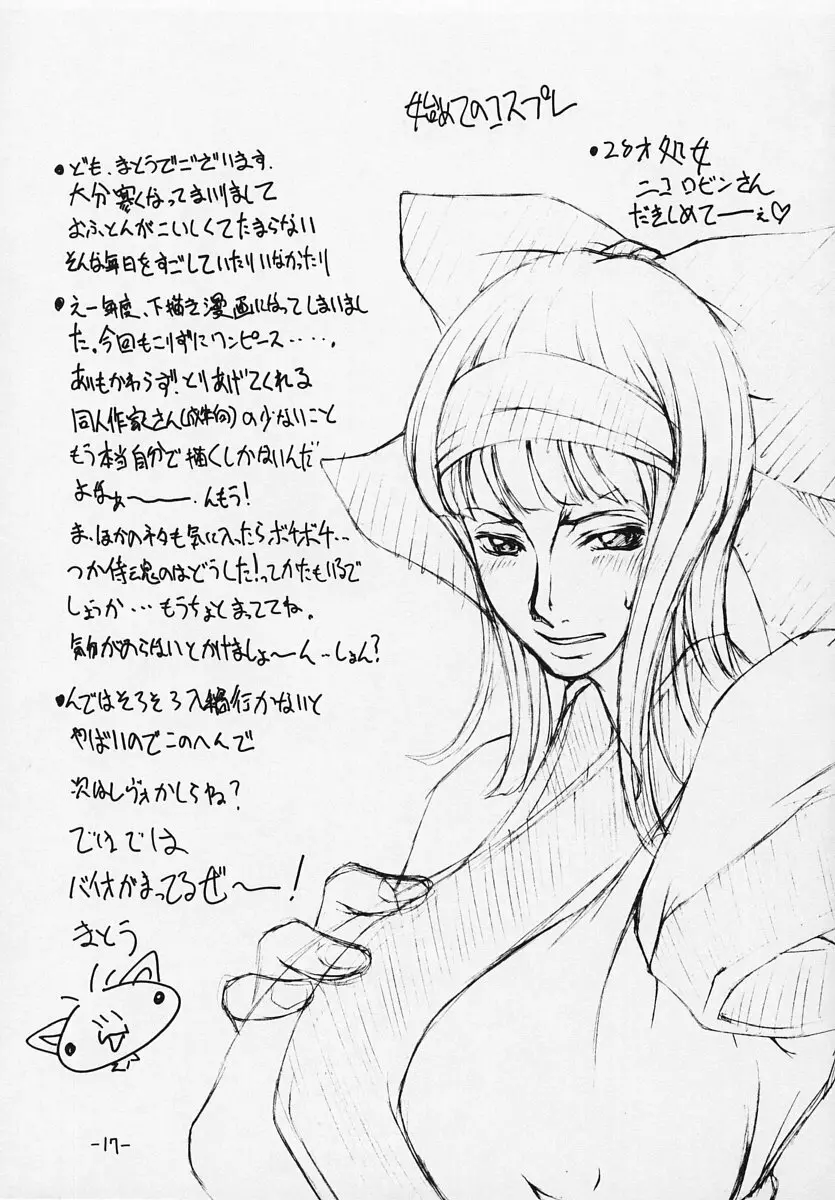 始めてのコスプレ
•28才処女
ニコロビンさん
だきしめてーーぇ♡
•ども、まとうでございます.
大分寒くなってまいりまして
おふとんがこいしくてたまらない
そんな毎日をすごしていたりいなかったり
•えー毎度、下描き漫画になってしまいまし
た。今回もこりずにワンピース・・・・・.
あいもかわらず!とりあげてくれる
同人作家さん(成年向)の少ないこと
もう本当自分で描くしかないんだ
よなぁー〜ー.んもう!
ま、ほかのネタも気に入ったらボチボチ・・
つか侍魂のはどうした!ってかたもいるで
しょうか・・・もうちょとまっててね。
気分がのらないとかけましょ〜ーん・・しょん?
•んではそろそろ入稿行かないと
やばいのでこのへんで
次はレヴォかしらね?
でわでは
バイオがまってるぜ〜ー!
まとう
-17-